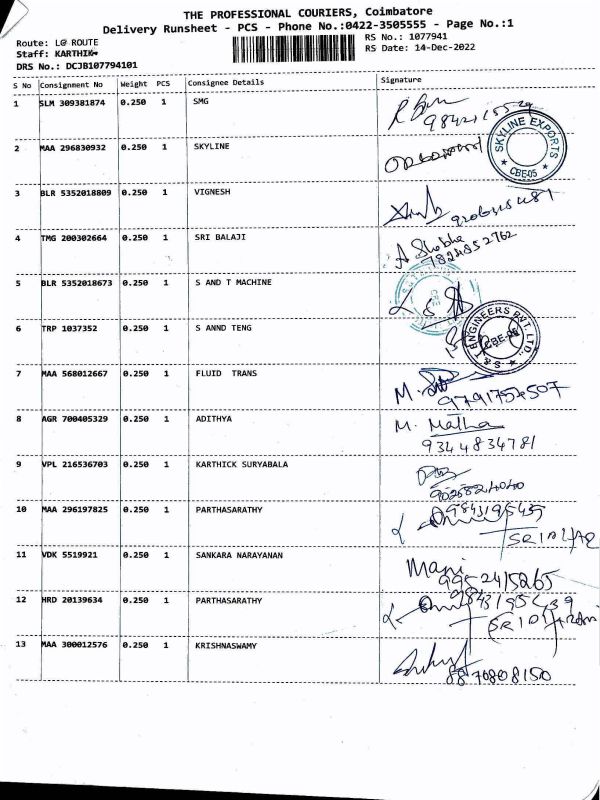 THE PROFESSIONAL COURIERS, Coimbatore
Delivery Runsheet - PCS - Phone No.:0422-3505555 - Page No.:1
Route: L@ ROUTE
RS No.: 1077941
Staff: KARTHIK
RS Date: 14-Dec-2022
DRS No.: DCJB107794101
S No Consignment No Weight PCS Consignee Details Signature
1 SLM 309381874 0.250 1 SMG
2 MAA 296830932 0.250 1 SKYLINE
SKYLINE EXPORTS
CBE-05
3 BLR 5352018809 0.250 1 VIGNESH
4 TMG 200302664 0.250 1 SRI BALAJI
A Shobha
7894852762
5 BLR 5352018673 0.250 1 S AND T MACHINE
6 TRP 1037352 0.250 1 S ANND TENG
ENGINEERS PVT. LTD.
CBE-05
7 MAA 568012667 0.250 1 FLUID TRANS
M.
9791754507
8 AGR 700405329 0.250 1 ADITHYA
M. Matha
9344834781
9 VPL 216536703 0.250 1 KARTHICK SURYABALA
10 MAA 296197825 0.250 1 PARTHASARATHY
9843195439
11 VDK 5519921 0.250 1 SANKARA NARAYANAN
Mani
9952415265
12 HRD 20139634 0.250 1 PARTHASARATHY
9843195439
13 MAA 300012576 0.250 1 KRISHNASWAMY
8870808150